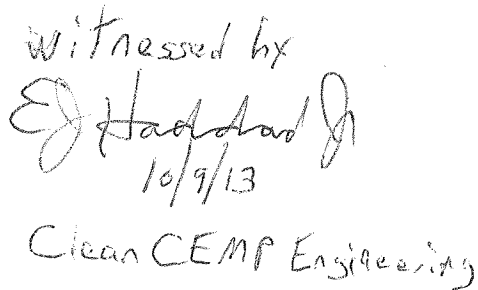 witnessed by
EJ Haddad Jr
10/9/13
Clean CEMP Engineering